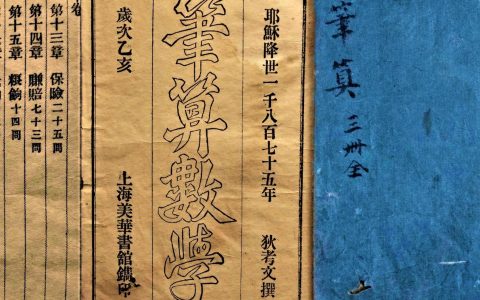 筆算 三冊全
上
耶穌降世一千八百七十五年 狄考文撰
筆算數學
歲次乙亥 上海美華書館鐫印
卷
第十三章 保險二十五問
第十四章 賺賠七十三問
第十五章 糧餉十四問